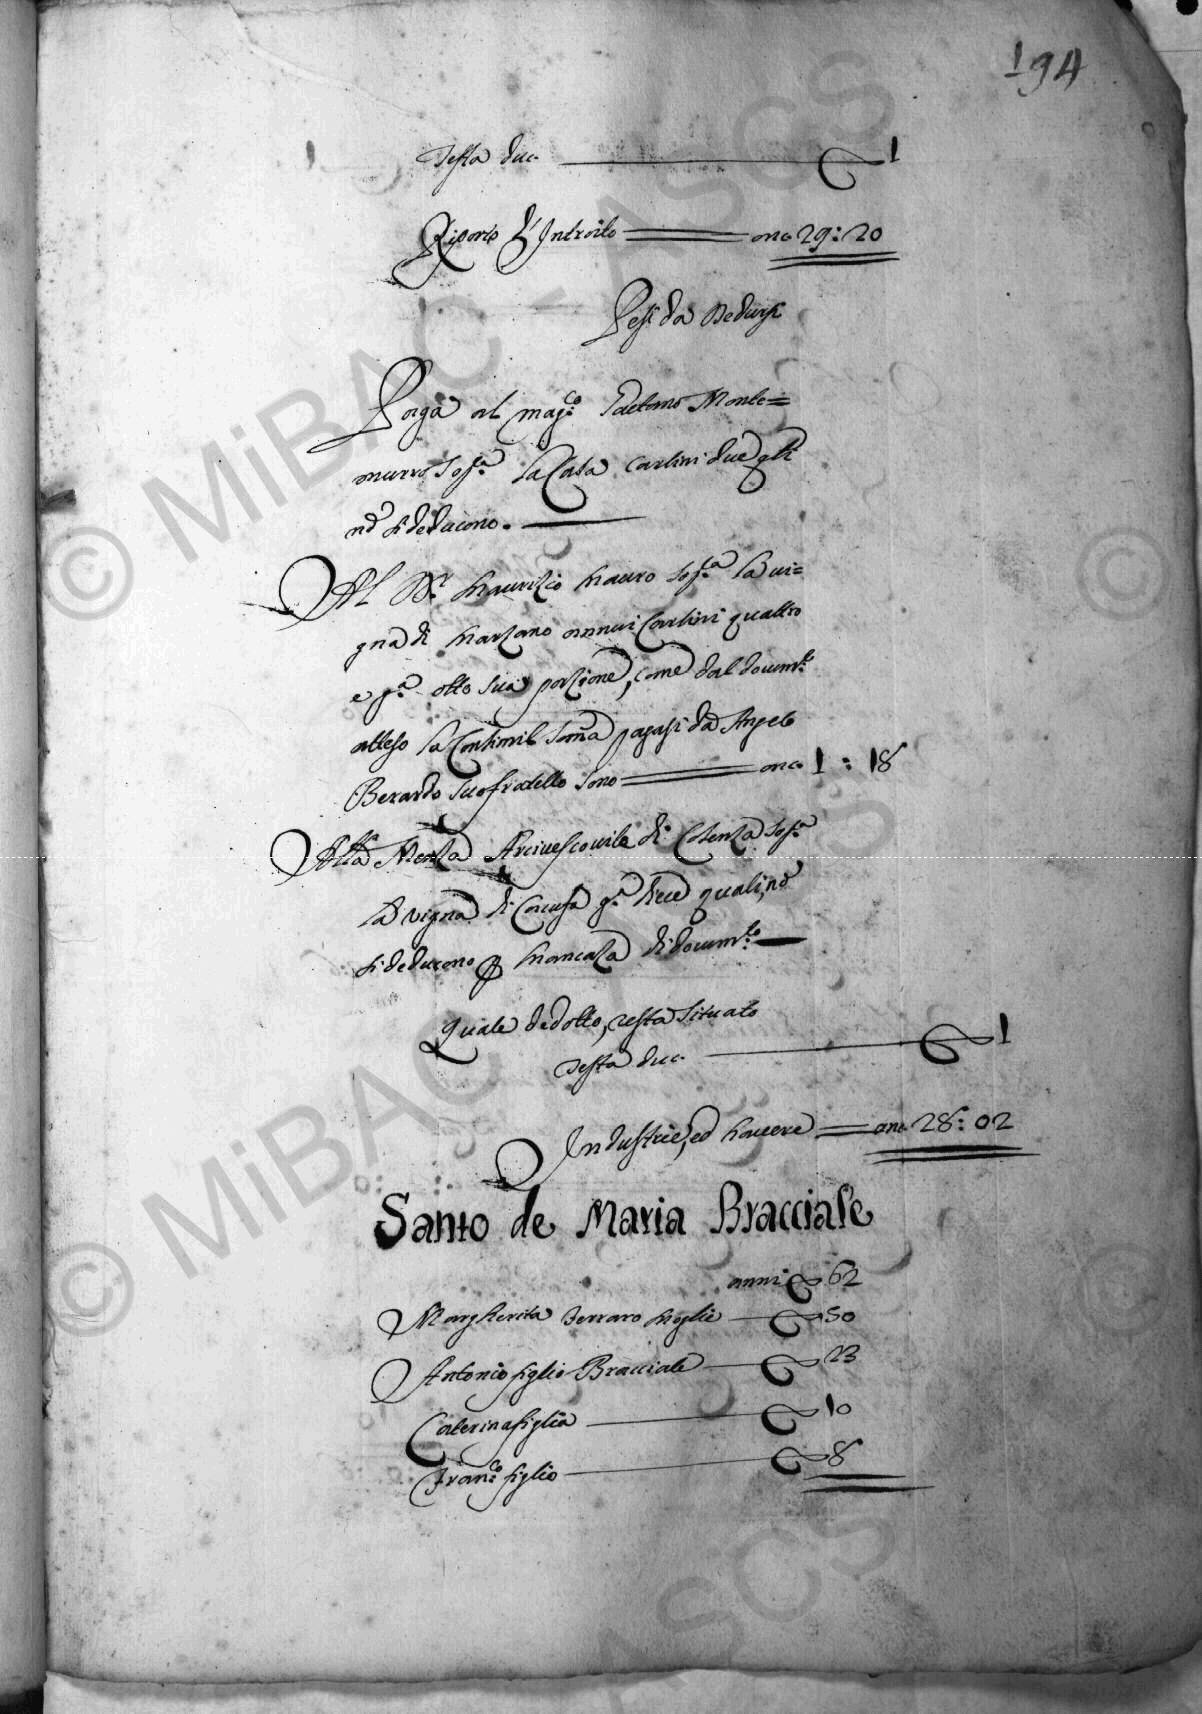 194
Testa duc. 1
Riporto d'Introito onc. 29:20
Pesi da Dedursi
Paga al mag.co Gaetano Monte=
murro sop.a la Casa carlini due q̃li
nõ si deducono.
Al Dr. Maurizio Mauro sop.a la vi=
gna di Marzano annui Carlini quattro
e g.a otto sua porzione, come dal docum.to
atteso la Consimil somã pagasi da Angelo
Berardo suo fratello sono onc. 1:18
Alla Menza Arcivescovile di Cosenza sop.a
la vigna di g.a diece quali, nõ
si deducono ꝑ mancaza di docum.to
Quale dedotto, resta situato
Testa duc. 1
Industrie, ed havere onc. 28:02
Santo de Maria Bracciale
anni 62
Margherita Ferraro moglie 50
Antonio figlio Bracciale 23
Caterina figlia 10
Fran.co figlio 8
© MiBAC - ASCS
© MiBAC - ASCS